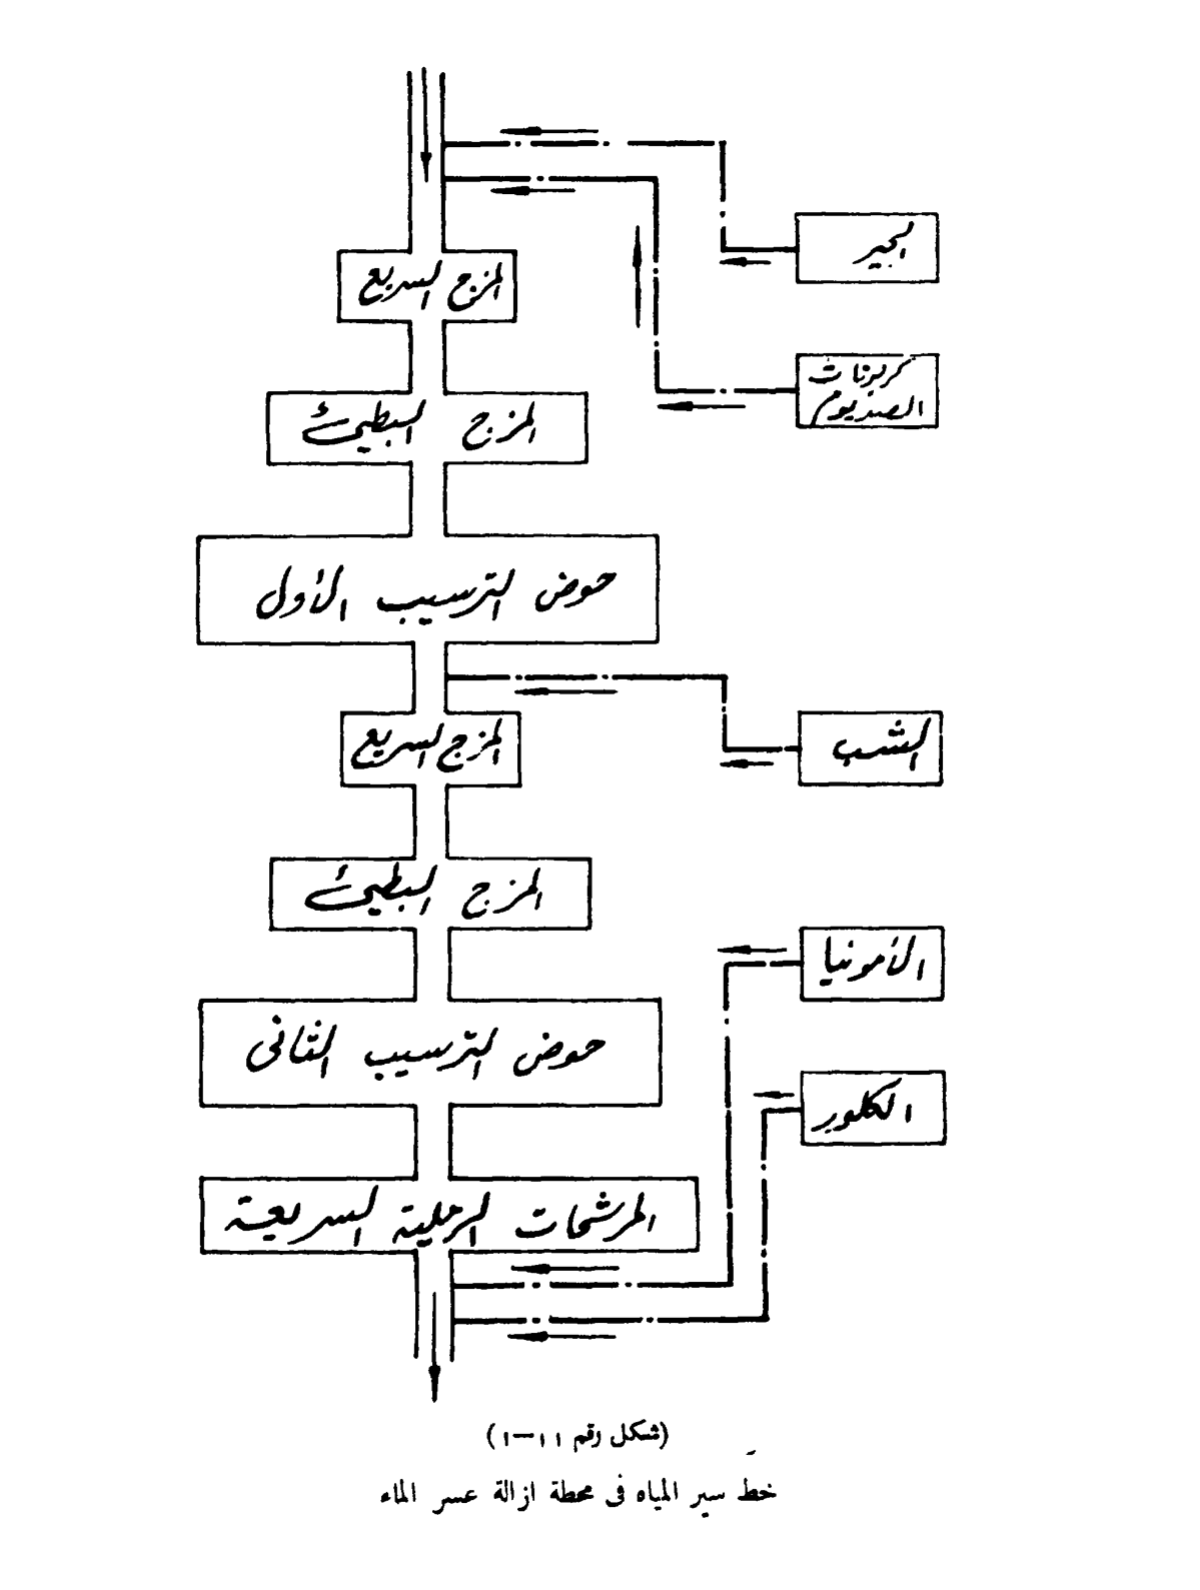 الجير
المزج السريع
كربونات
الصوديوم
المزج البطيئ
حوض الترسيب الأول
المزج السريع
الشب
المزج البطيئ
الأمونيا
حوض الترسيب الثانى
الكلور
المرشحات الرملية السريعة
(شكل رقم ١١—١)
خط سير المياه فى محطة ازالة عسر الماء